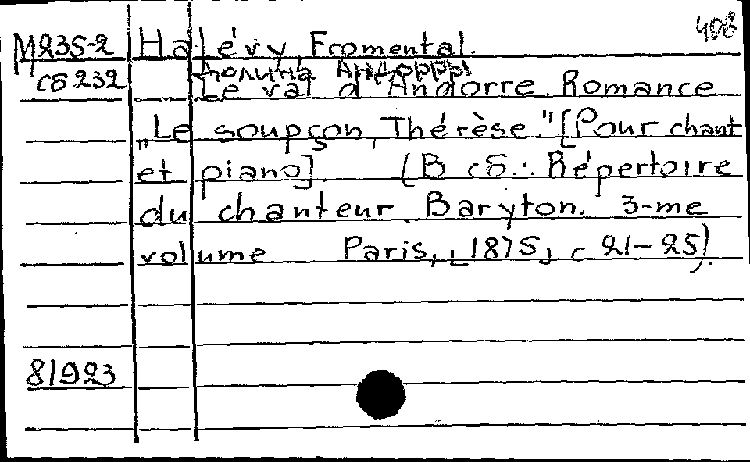 408
M235-2 Halévy, Fromental.
сб 232 Долина Андорры
Le val d'Andorre. Romance
„Le soupçon, Thérèse." [Pour chant
et piano]. (В сб.: Répertoire
du chanteur. Baryton. 3-me
volume Paris, [1875] с 21-25).
81923